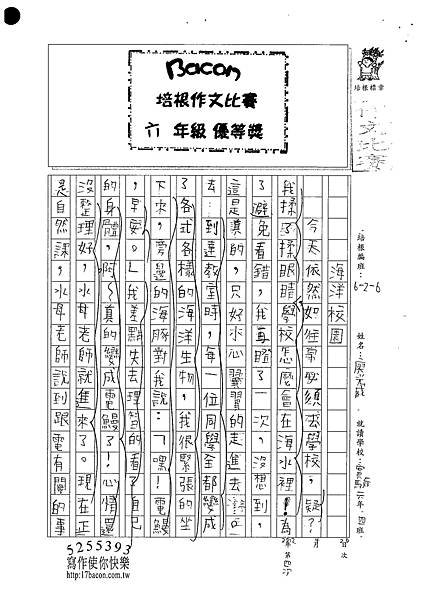 Bacon
培根作文比賽
六 年級 優等獎
培根標章
作文比賽
培根編班：6-2-6
姓名：
就讀學校： 六年 四班
海洋校園
今天依然如往常必須去學校，疑?
我揉了揉眼睛學校怎麼會在海水裡!為
了避免看錯，我再瞪了一次，沒想到，
這是真的，只好小心翼翼的走進去
去：到達教室時，每一位同學全都變成
了各式各樣的海洋生物，我很緊張的坐
下來，旁邊的海豚對我說：「嘿!電鰻
，早安。」我差點失去理智的看了自己
的身體，啊～真的變成電鰻了!心情還
沒整理好，水母老師就進來了。現在正
是自然課，水母老師說到跟電有關的事
5255393
寫作使你快樂
http://17bacon.com.tw